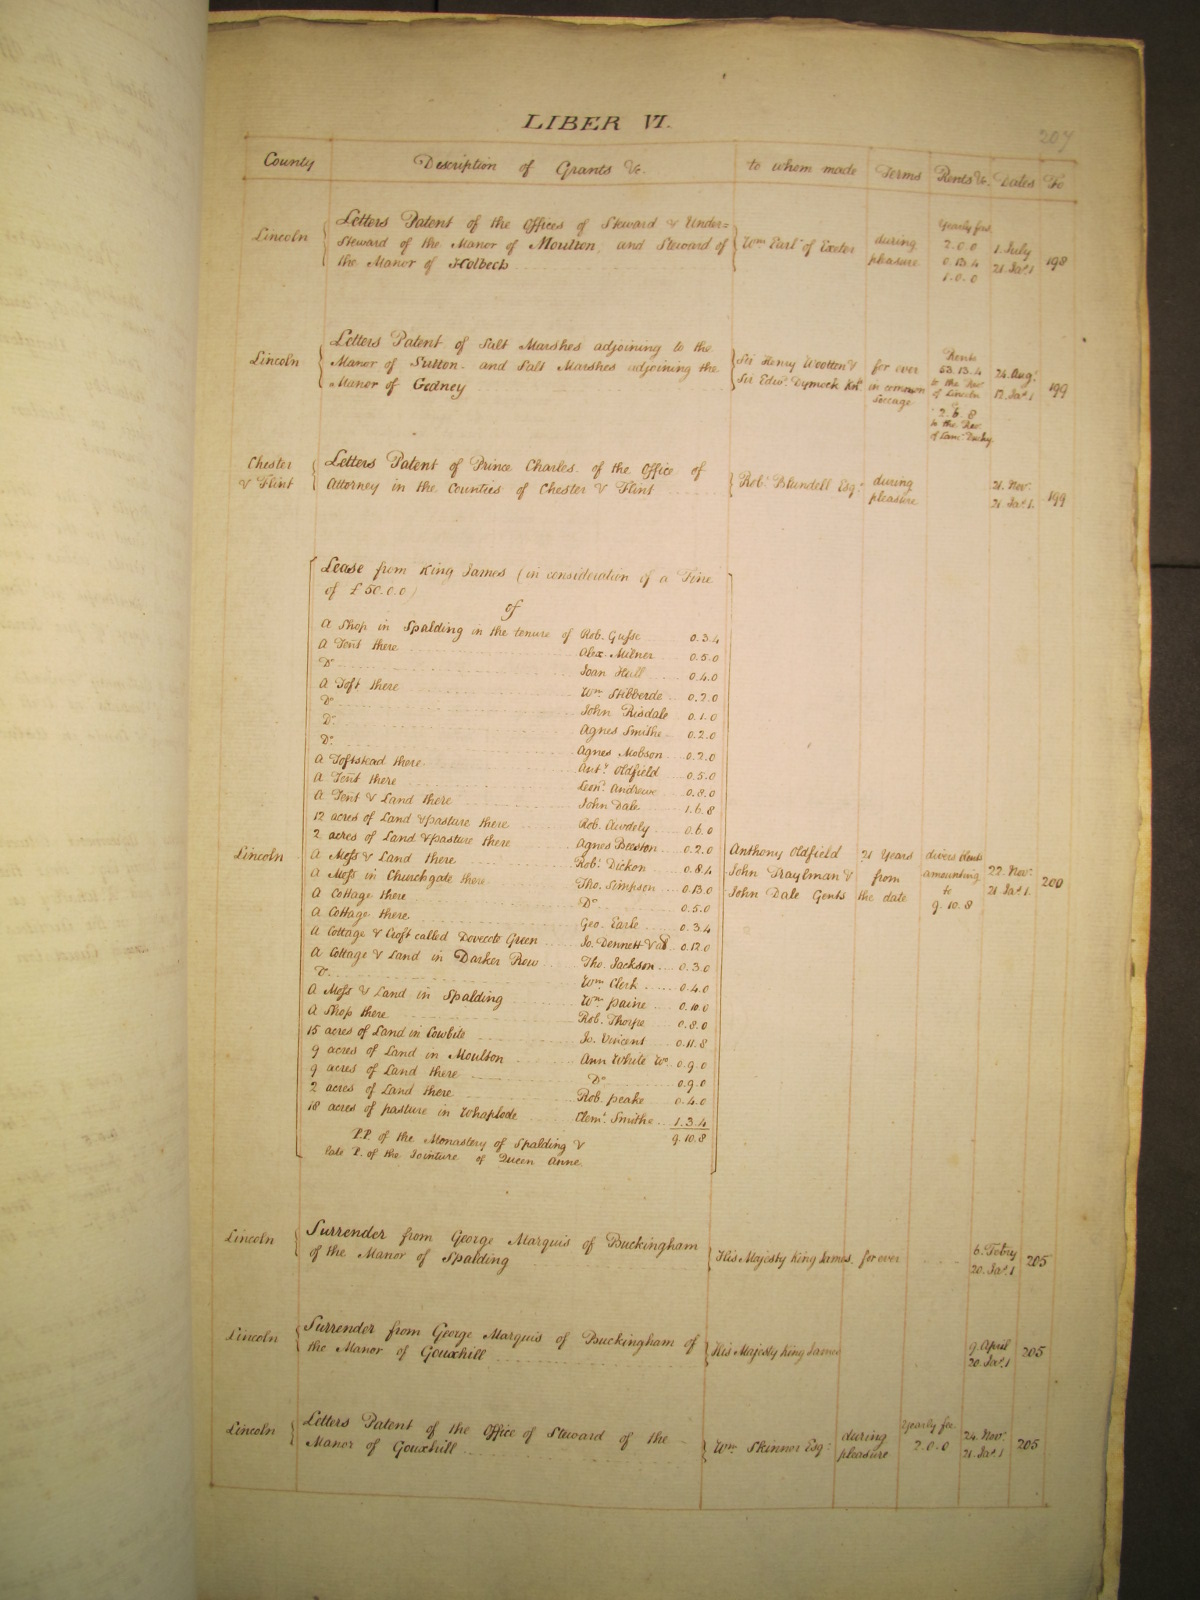 LIBER VI.
207
County Description of Grants &c. to whom made Terms Rents &c. Dates Fo
Lincoln
Letters Patent of the Offices of Steward & Under=
Steward of the Manor of Moulton, and Steward of
the Manor of Holbech
Wm. Earl of Exeter
during
pleasure
Yearly fees
2.0.0
0.13.4
1.0.0
1. July
21. Jas. 1
198
Lincoln
Letters Patent of Salt Marshes adjoining to the
Manor of Sutton and Salt Marshes adjoining the
Manor of Gedney
Sir Henry Wootton &
Sir Edwd. Dymock Kts.
for ever
in common
soccage
Rents
53.13.4
to the Rec.
of Lincoln
2.6.8
to the Rec.
of Lanc. Duchy
24. Augt.
12. Jas. 1
199
Chester
& Flint
Letters Patent of Prince Charles of the Office of
Attorney in the Counties of Chester & Flint
Robt. Blundell Esqr.
during
pleasure
21. Nov.
21 Jas. 1.
199
Lincoln
Lease from King James (in consideration of a Fine
of £50.0.0)
of
A Shop in Spalding in the tenure of Rob. Gusse 0.3.4
A Tent there Alex. Milner 0.5.0
Do. Joan Hull 0.4.0
A Toft there Wm. Stibberde 0.2.0
Do. John Risdale 0.1.0
Do. Agnes Smithe 0.2.0
Do. Agnes Mobson 0.2.0
A Toftstead there Anty. Oldfield 0.5.0
A Tent there Leond. Andrewe 0.8.0
A Tent & Land there John Dale 1.6.8
12 acres of Land & pasture there Rob. Awdely 0.6.0
2 acres of Land & pasture there Agnes Beeston 0.2.0
A Mess & Land there Robt. Dickon 0.8.4
A Mess in Churchgate there Tho. Simpson 0.13.0
A Cottage there Do. 0.5.0
A Cottage there Geo. Earle 0.3.4
A Cottage & Croft called Dovecote Green Jo. Dennett 0.12.0
A Cottage & Land in Darker Row Tho. Jackson 0.3.0
Do. Wm. Clerk 0.4.0
A Mess & Land in Spalding Wm. Paine 0.10.0
A Shop there Rob. Thorpe 0.8.0
15 acres of Land in Cowbite Jo. Vincent 0.11.8
9 acres of Land in Moulton Ann White Wo. 0.9.0
9 acres of Land there Do. 0.9.0
2 acres of Land there Rob. Peake 0.4.0
18 acres of pasture in Whaplode Clemt. Smithe 1.3.4
9.10.8
P.P. of the Monastery of Spalding &
late P. of the Jointure of Queen Anne
Anthony Oldfield
John Traylman &
John Dale Gents
21 Years
from
the date
divers Rents
amounting
to
9.10.8
22. Nov.
21 Jas. 1.
200
Lincoln
Surrender from George Marquis of Buckingham
of the Manor of Spalding
His Majesty King James
for ever
6. Febry
20. Jas. 1
205
Lincoln
Surrender from George Marquis of Buckingham of
the Manor of Gouxhill
His Majesty King James
9. April
20. Jas. 1
205
Lincoln
Letters Patent of the Office of Steward of the
Manor of Gouxhill
Wm. Skinner Esqr.
during
pleasure
Yearly fee
2.0.0
24. Nov.
21. Jas. 1
205